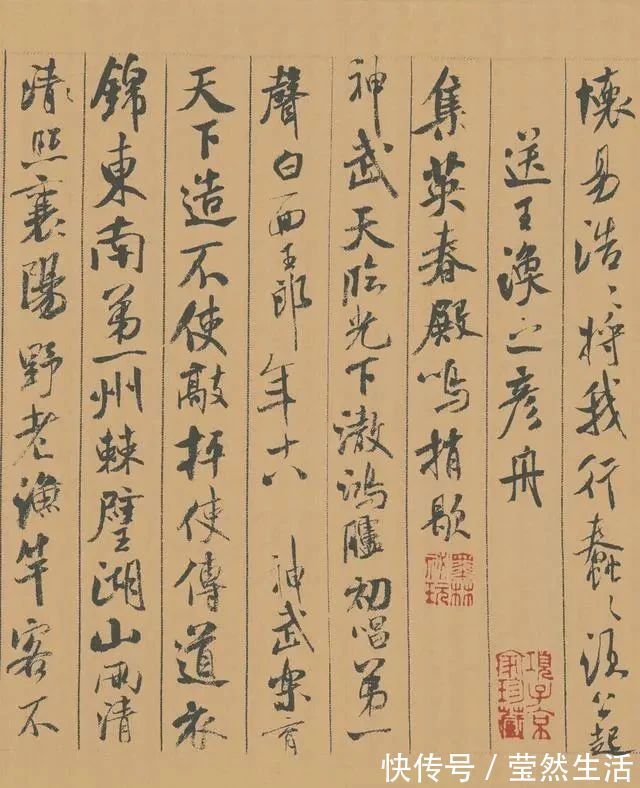 懷易浩〻將我行蠢〻須公起
送王渙之彥舟
集英春殿鳴捎歇
神武天臨光下澈鴻臚初唱第一
聲白面玉郎年十八 神武樂育
天下造不使敲枰使傳道衣
錦東南第一州棘璧湖山兩清
清照襄陽野老漁竿客不
墨林祕玩
項子京家珍藏
快传号／莹然生活